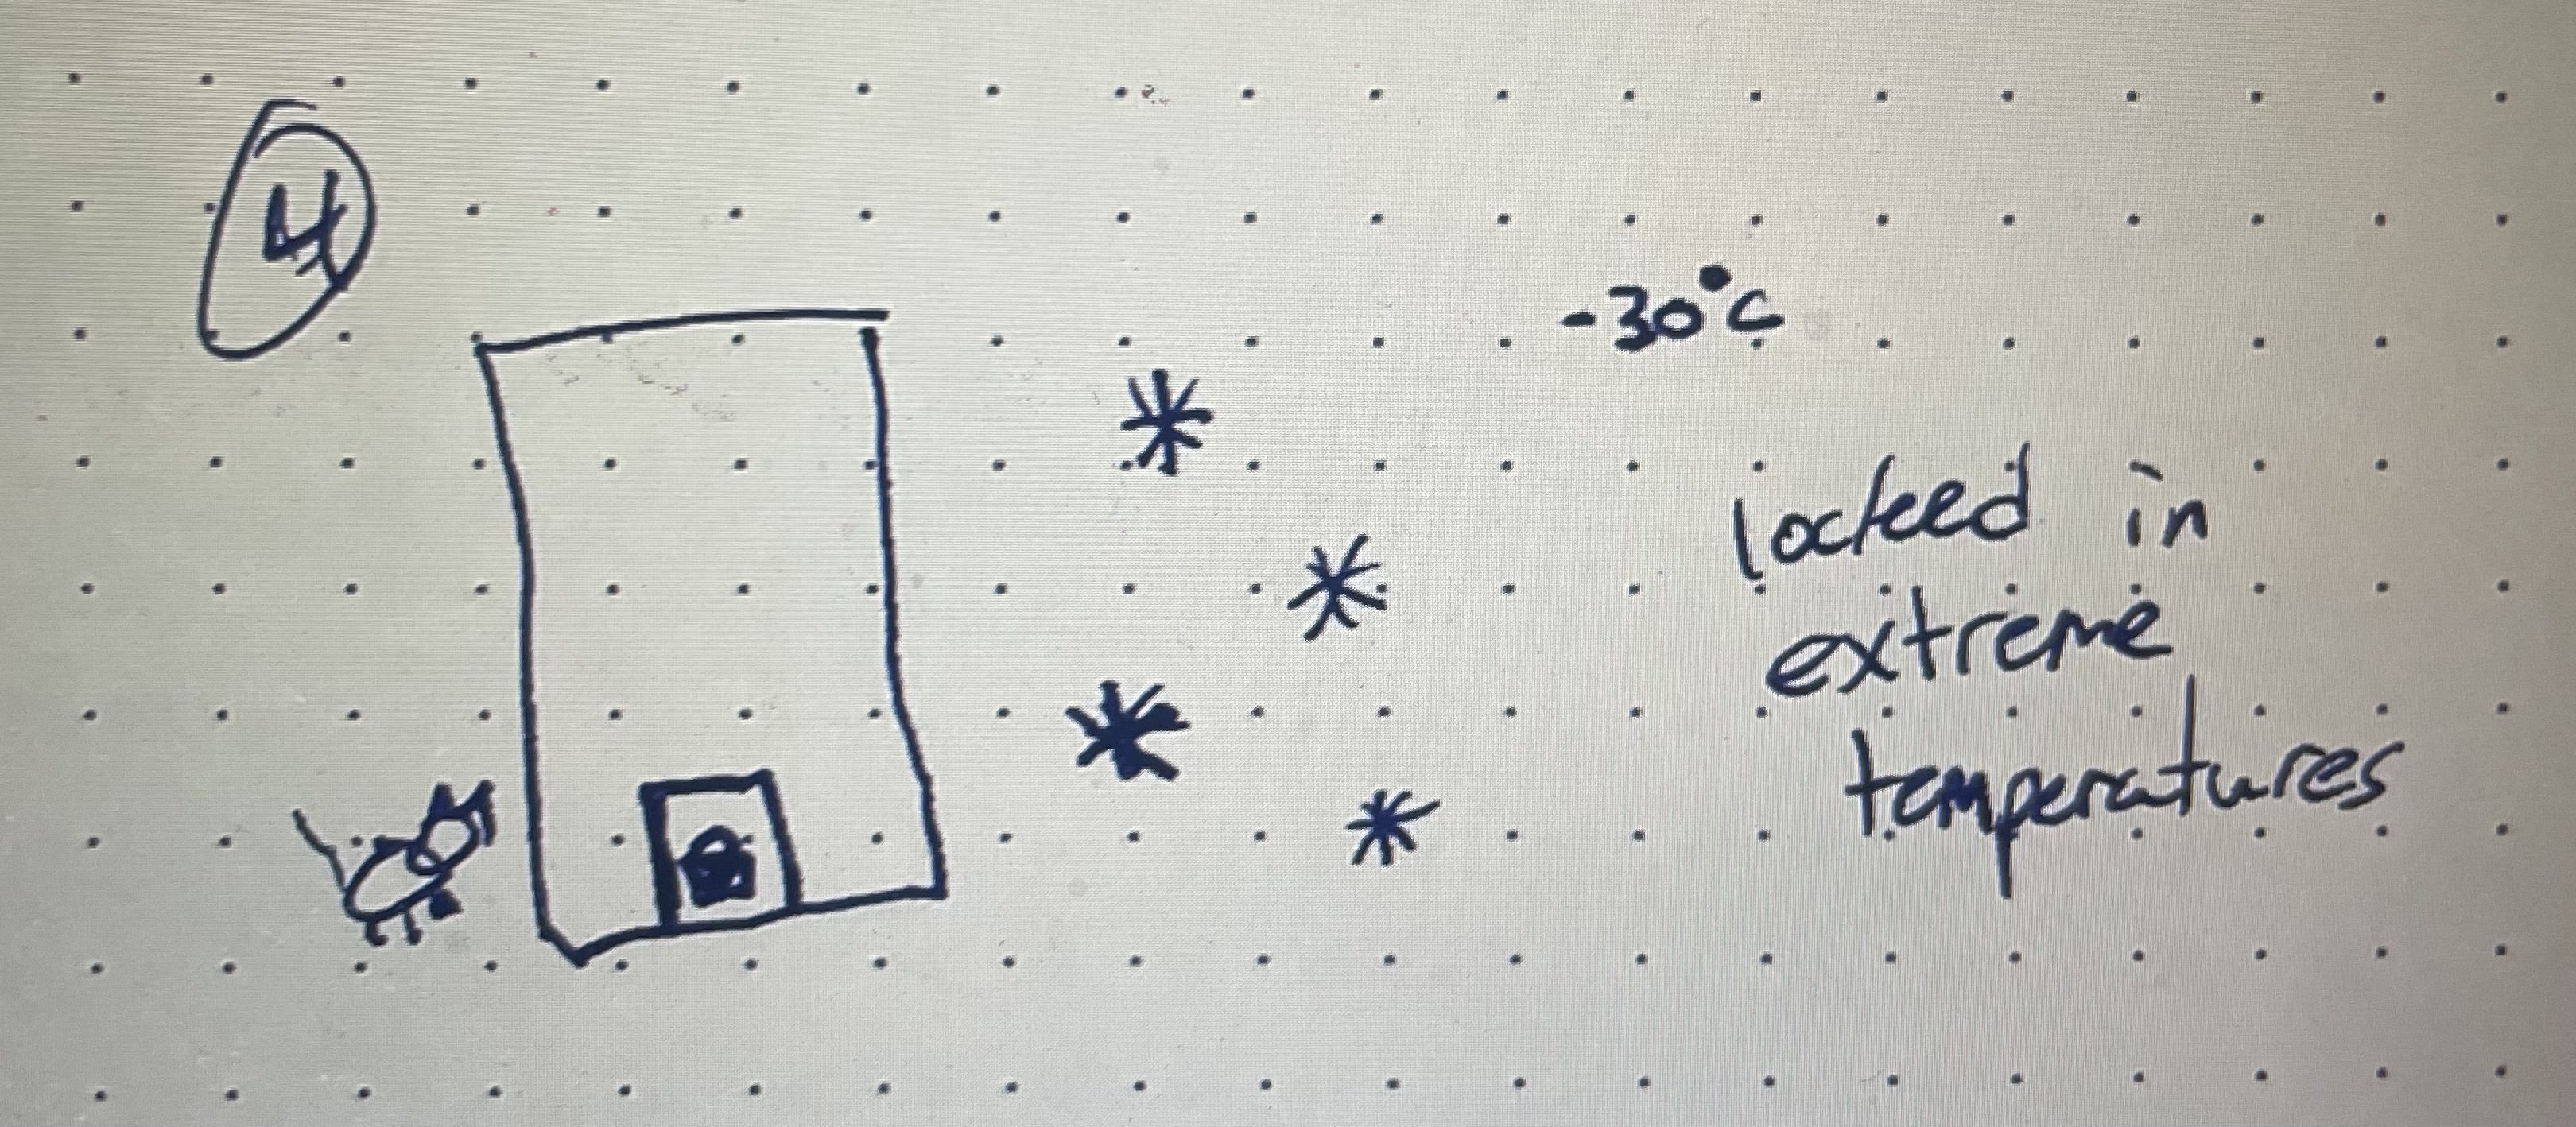 4
-30°C
locked in
extreme
temperatures